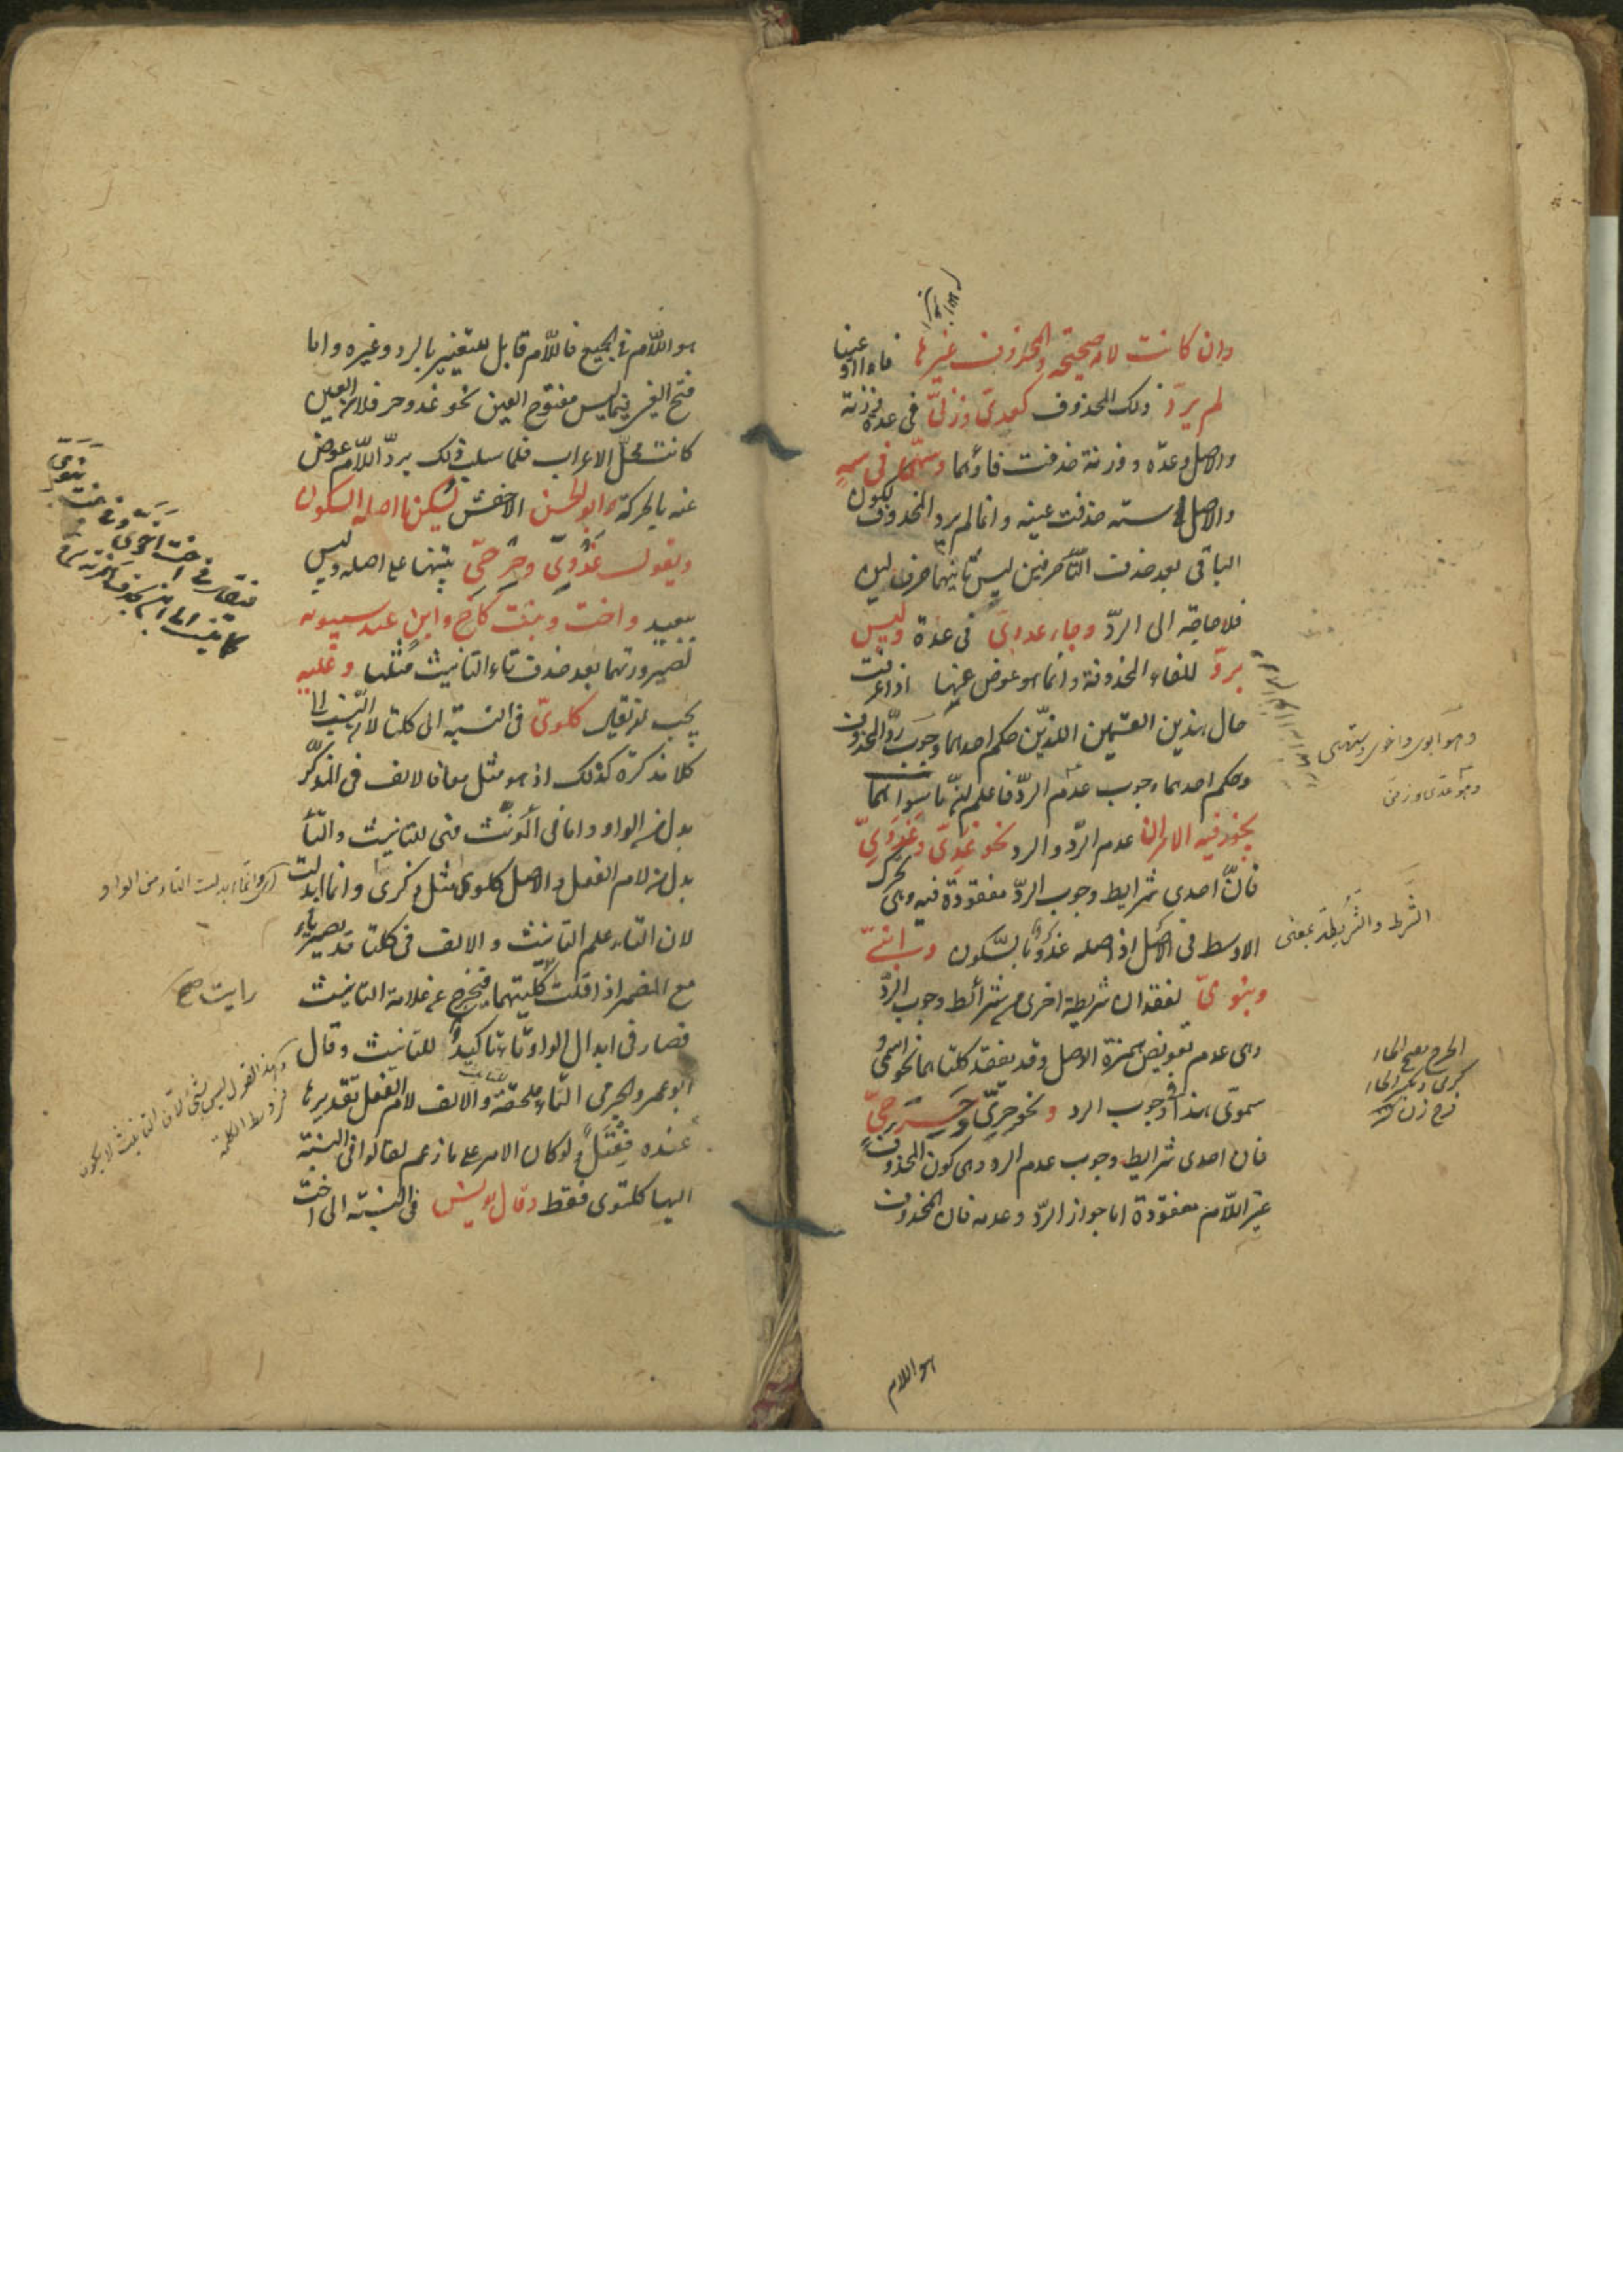 وان كانت لامه صحيحة والمحذوف غيرها فاء او عينا
لم يردّ ذلك المحذوف كعدىّ وزنىّ فى عدة وزنة
والاصل وعدة ووزنة حذفت فاؤهما وسهىّ فى سه
والاصل سته حذفت عينه وانما لم يرد المحذوف لكون
الباقى بعد حذف التاء حرفين ليس ثانيهما حرف لين
فلا حاجة الى الردّ وجاء عدوى فى عدة وليس
بردّ للفاء المحذوفة وانما هو عوض عنها اذا عرفت
حال هذين القسمين اللذين حكم احدهما وجوب ردّ المحذوف
وحكم احدهما وجوب عدم الردّ فاعلم ان ما سواهما
يجوز فيه الامران عدم الردّ والرد نحو غدىّ وغدوىّ
فان احدى شرايط وجوب الردّ مفقودة فيه وهى تحرك
الاوسط فى الاصل اذ اصله غدو بالسكون وابنىّ
وبنوىّ لفقدان شريطة اخرى من شرائط وجوب الردّ
وهى عدم تعويض همزة الاصل وقد يفقد كلتاهما نحو اسمى و
سموى هذا فى وجوب الرد ونحو حرىّ وحرحىّ
فان احدى شرايط وجوب عدم الرد وهى كون المحذوف
غير اللام مفقودة اما جواز الردّ وعدمه فان المحذوف
هو اللام
وهو ابوى واخوى وستهى
وهو عدى وزنى
الشرط والشريطة بمعنى
هو اللام فى الجميع فاللام قابل للتغيير بالرد وغيره واما
فتح العين فيما ليس مفتوح العين نحو غد وحر فلان العين
كانت محلّ الاعراب فلما سلب ذلك بردّ اللام عوض
عنه بالحركة وابو الحسن الاخفش يسكن ما اصله السكون
ويقول غدوىّ وحرحىّ تنبيها على اصله وليس
ببعيد واخت وبنت كاخ وابن عند سيبويه
لصيرورتهما بعد حذف تاء التانيث مثلهما وعليه
يجب ان يقال كلوىّ فى النسبة الى كلتا لان النسب الى
كلا مذكره كذلك اذ هو مثل معا فالالف فى المذكّر
بدل من الواو واما فى المونث فهى للتانيث والتاء
بدل من لام الفعل والاصل كلوى مثل ذكرى وانما ابدلت
لان التاء علم التانيث والالف فى كلتا قد يصير ياء
مع المضمر اذا قلت كلتيهما فيخرج عن علامة التانيث
فصار فى ابدال الواو تاء تاكيدا للتانيث وقال
ابو عمر والجرمى التاء ملحقة والالف لام الفعل تقديرها
عنده فعتل ولو كان الامر على ما زعم لقالوا فى النسبة
اليها كلتوى فقط وقال يونس فى النسبة الى اخت
وانما بدلت التاء من الواو
رايت
وهذا القول ليس بشئ لان التانيث لا يكون
فى وسط الكلمة